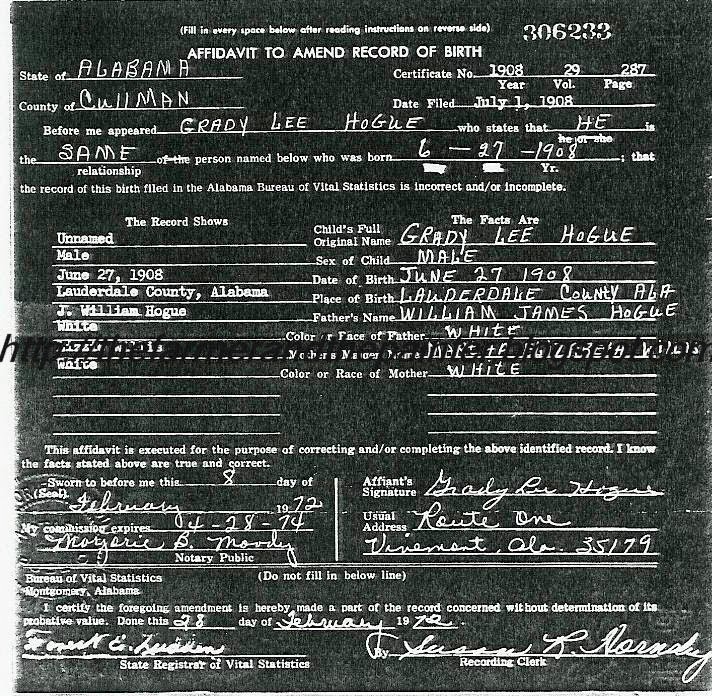 (Fill in every space below after reading instructions on reverse side) 306233
AFFIDAVIT TO AMEND RECORD OF BIRTH
State of ALABAMA Certificate No. 1908 29 287
Year Vol. Page
County of CULLMAN Date Filed July 1, 1908
Before me appeared GRADY LEE HOGUE who states that HE is
he or she
the SAME of the person named below who was born 6 - 27 - 1908; that
relationship Yr.
the record of this birth filed in the Alabama Bureau of Vital Statistics is incorrect and/or incomplete.
The Record Shows The Facts Are
Unnamed Child's Full Original Name GRADY LEE HOGUE
Male Sex of Child MALE
June 27, 1908 Date of Birth JUNE 27 1908
Lauderdale County, Alabama Place of Birth LAUDERDALE COUNTY ALA
J. William Hogue Father's Name WILLIAM JAMES HOGUE
White Color or Race of Father WHITE
White Color or Race of Mother WHITE
This affidavit is executed for the purpose of correcting and/or completing the above identified record. I know
the facts stated above are true and correct.
Sworn to before me this 8 day of Affiant's Signature Grady Lee Hogue
(Seal) February 1972
My commission expires 4-28-74 Usual Address Route One
Marjorie B. Moody Vinemont, Ala. 35179
Notary Public
Bureau of Vital Statistics (Do not fill in below line)
Montgomery, Alabama
I certify the foregoing amendment is hereby made a part of the record concerned without determination of its
probative value. Done this 28 day of February 1972.
By Susan K.
State Registrar of Vital Statistics Recording Clerk